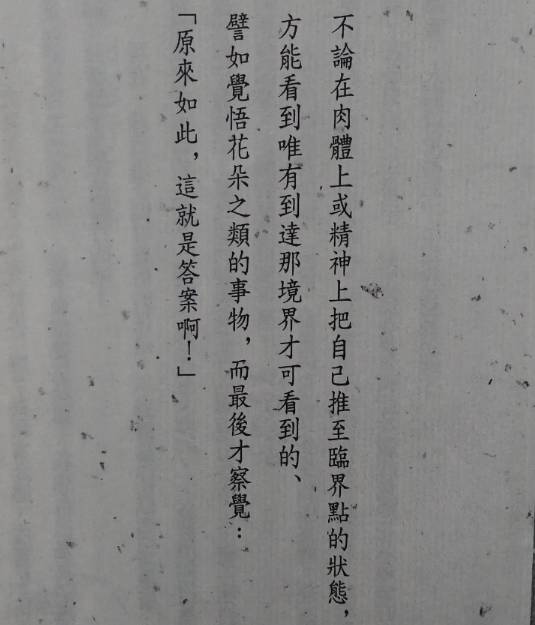 不論在肉體上或精神上把自己推至臨界點的狀態，
方能看到唯有到達那境界才可看到的、
譬如覺悟花朵之類的事物，而最後才察覺：
「原來如此，這就是答案啊！」